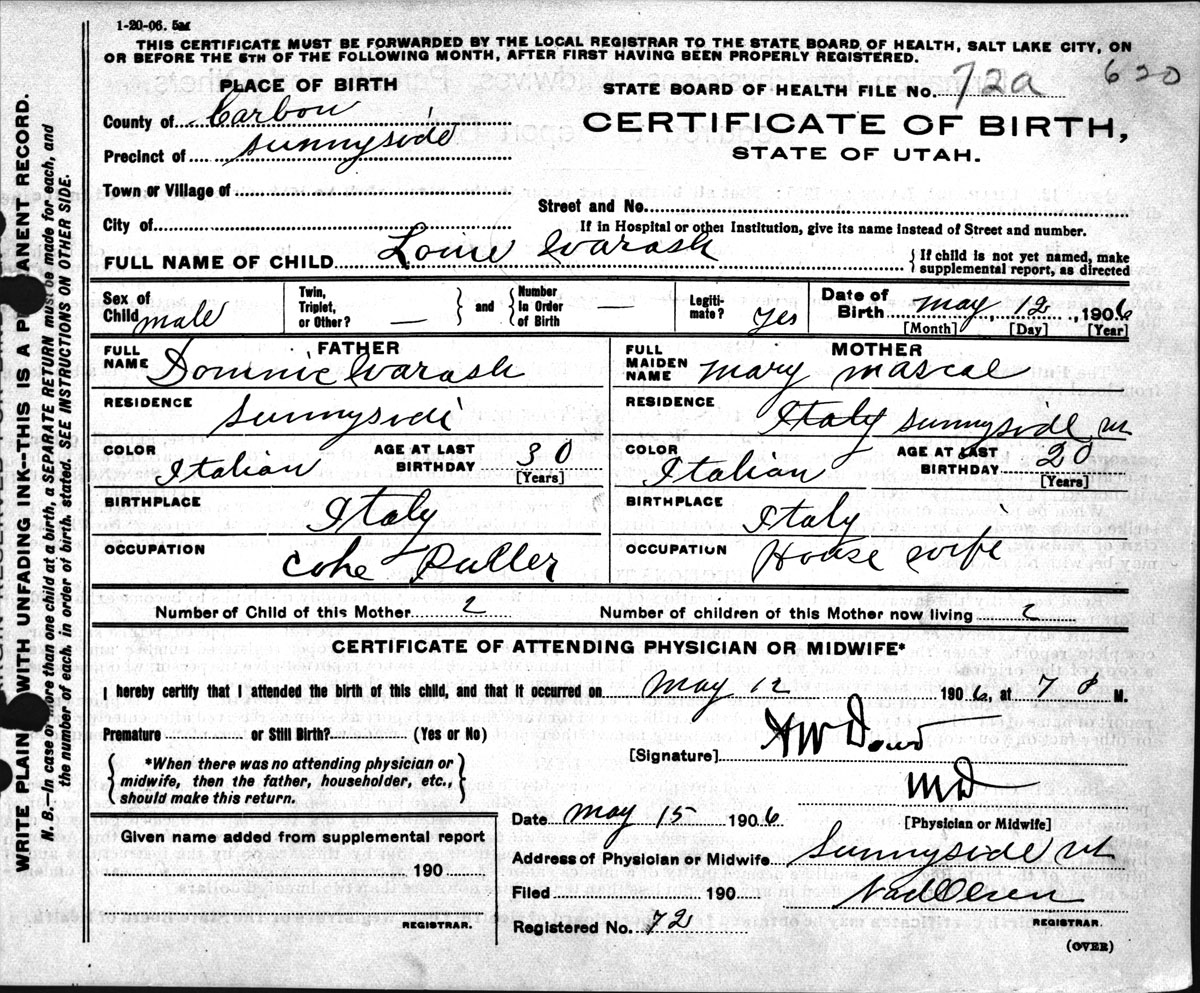 1-20-06. 5M
THIS CERTIFICATE MUST BE FORWARDED BY THE LOCAL REGISTRAR TO THE STATE BOARD OF HEALTH, SALT LAKE CITY, ON
OR BEFORE THE 5TH OF THE FOLLOWING MONTH, AFTER FIRST HAVING BEEN PROPERLY REGISTERED.
620
PLACE OF BIRTH
STATE BOARD OF HEALTH FILE No. 72a
County of Carbon
CERTIFICATE OF BIRTH,
Precinct of Sunnyside
STATE OF UTAH.
Town or Village of
Street and No.
City of
If in Hospital or other Institution, give its name instead of Street and number.
FULL NAME OF CHILD Louie Varash
{ If child is not yet named, make
supplemental report, as directed
Sex of Child male
Twin, Triplet, or Other? —
} and {
Number In Order of Birth —
Legiti-mate? yes
Date of Birth May 12, 1906
[Month] [Day] [Year]
FATHER
FULL NAME Dominic Varash
MOTHER
FULL MAIDEN NAME Mary Mascal
RESIDENCE Sunnyside
RESIDENCE Italy Sunnyside ut
COLOR Italian AGE AT LAST BIRTHDAY 30 [Years]
COLOR Italian AGE AT LAST BIRTHDAY 20 [Years]
BIRTHPLACE Italy
BIRTHPLACE Italy
OCCUPATION Coke Puller
OCCUPATION House wife
Number of Child of this Mother 2
Number of children of this Mother now living 2
CERTIFICATE OF ATTENDING PHYSICIAN OR MIDWIFE*
I hereby certify that I attended the birth of this child, and that it occurred on May 12 1906, at 7 M.
Premature or Still Birth? (Yes or No)
[Signature] HW Dowd
{ *When there was no attending physician or
midwife, then the father, householder, etc.,
should make this return. }
MD
Date May 15 1906
[Physician or Midwife]
Given name added from supplemental report
190
REGISTRAR.
Address of Physician or Midwife Sunnyside ut
Filed 190
REGISTRAR.
Registered No. 72
(OVER)
WRITE PLAINLY WITH UNFADING INK--THIS IS A PERMANENT RECORD.
N. B.—In case of more than one child at a birth, a SEPARATE RETURN must be made for each, and
the number of each, in order of birth, stated. SEE INSTRUCTIONS ON OTHER SIDE.